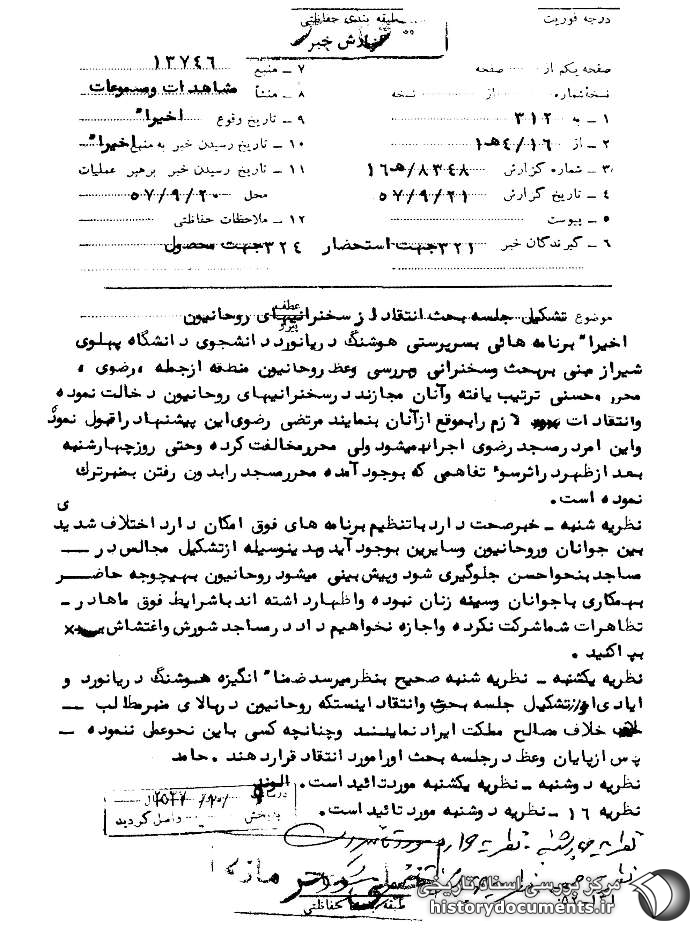 درجه فوریت
طبقه بندی حفاظتی
گزارش خبر
صفحه یکم از صفحه
نسخه شماره از نسخه
۱ ـ به ۳۱۲
۲ ـ از ۱۶/ﻫ۴۱
۳ ـ شماره گزارش ۸۳۴۸/ﻫ۱۶
۴ ـ تاریخ گزارش ۵۷/۹/۲۱
۵ ـ پیوست
۶ ـ گیرندگان خبر ۳۲۱جهت استحضار ۳۲۴جهت محصول
۷ ـ منبع ۱۳۷۴۶
۸ ـ منشأ مشاهدات ومسموعات
۹ ـ تاریخ وقوع اخیرا"
۱۰ ـ تاریخ رسیدن خبر به منبع اخیرا"
۱۱ ـ تاریخ رسیدن خبر برهبر عملیات
محل ۵۷/۹/۲۰
۱۲ ـ ملاحظات حفاظتی
موضوع تشکیل جلسه بحث انتقاد از سخنرانیهای روحانیون
عطف
پیرو
اخیرا" برنامه هائی بسرپرستی هوشنگ دریانورد دانشجوی دانشگاه پهلوی
شیراز مبنی بربحث وسخنرانی وبررسی وعظ روحانیون منطقه ازجمله ، رضوی ،
محرر ، حسنی ترتیب یافته وآنان مجازند درسخنرانیهای روحانیون دخالت نموده
وانتقادات لازم رابموقع ازآنان بنمایند مرتضی رضوی این پیشنهاد راقبول نموده
واین امر درمسجد رضوی اجرا میشود ولی محرر مخالفت کرده وحتی روزچهارشنبه
بعد ازظهر دراثرسوء تفاهمی که بوجود آمده محرر مسجد رابدون رفتن بمنبر ترک
نموده است.
نظریه شنبه ـ خبرصحت دارد باتنظیم برنامه های فوق امکان دارد اختلاف شدیدی
بین جوانان وروحانیون وسایرین بوجود آید وبدینوسیله ازتشکیل مجالس در
مساجد بنحواحسن جلوگیری شود وپیش بینی میشود روحانیون بهیچوجه حاضر
بهمکاری باجوانان وسینه زنان نبوده واظهارداشته اند باشرایط فوق ماهادر
تظاهرات شماشرکت نکرده واجازه نخواهیم داد درمساجد شورش واغتشاش
بپاکنید .
نظریه یکشنبه ـ نظریه شنبه صحیح بنظرمیرسد ضمنا" انگیزه هوشنگ دریانورد و
ایادی او ازتشکیل جلسه بحث وانتقاد اینستکه روحانیون دربالای منبر مطالب
خلاف مصالح مملکت ایراد نمایند وچنانچه کسی باین نحوعمل ننموده
پس ازپایان وعظ درجلسه بحث اورا مورد انتقاد قراردهند . حامد
نظریه دوشنبه ـ نظریه یکشنبه موردتائید است. الوند
نظریه ۱۶ ـ نظریه دوشنبه مورد تائید است.
بخش واصل گردید
نظریه چهارشنبه
طبقه بندی حفاظتی
مرکز بررسی اسناد تاریخی
historydocuments.ir